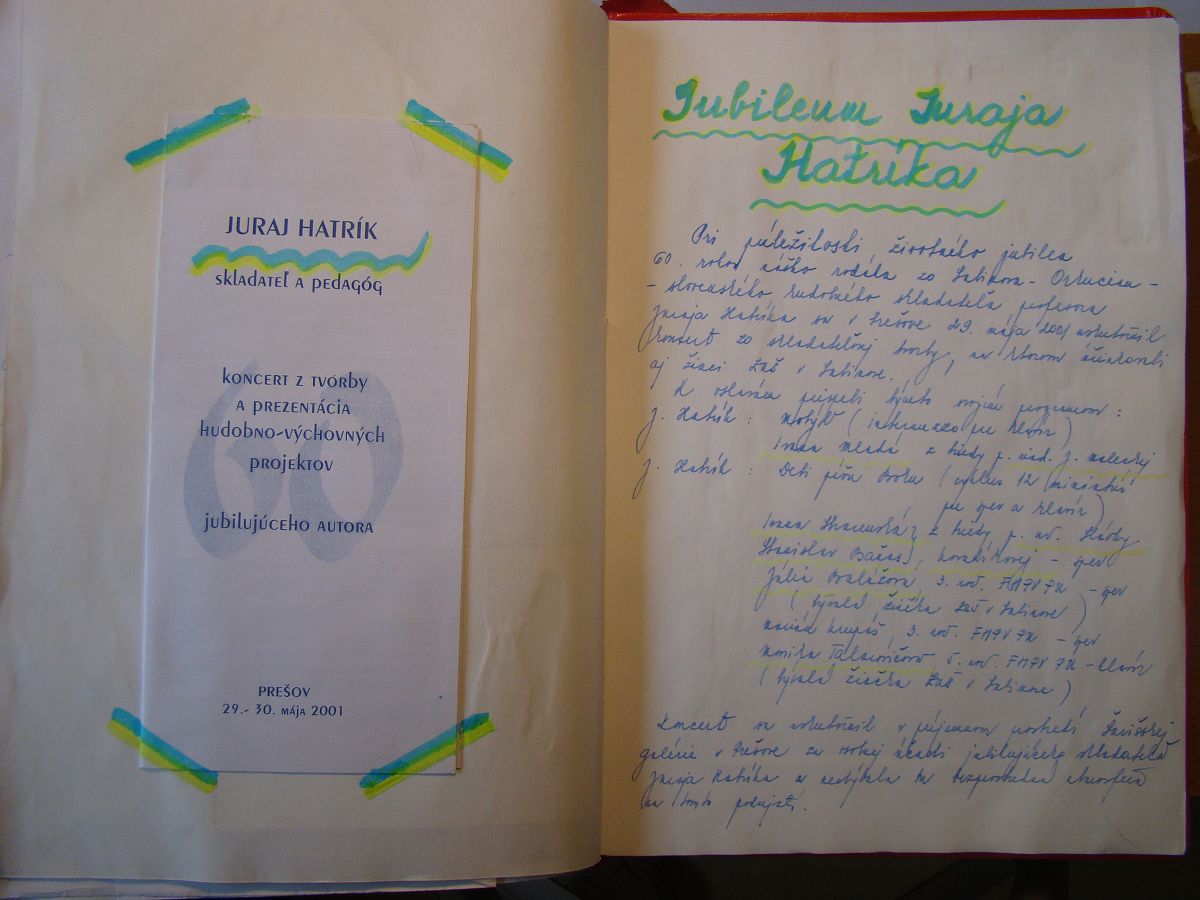 JURAJ HATRÍK
skladateľ a pedagóg
60
koncert z tvorby
a prezentácia
hudobno-výchovných
projektov
jubilujúceho autora
Prešov
29.- 30. mája 2001
Jubileum Juraja
Hatríka
Pri príležitosti životného jubilea
60. rokov nášho rodáka zo Sabinova - Orkucian -
- slovenského hudobného skladateľa profesora
Juraja Hatríka sa v Prešove 29. mája 2001 uskutočnil
koncert zo skladateľovej tvorby, na ktorom účinkovali
aj žiaci ZUŠ v Sabinove.
K oslavám prispeli týmto svojím programom:
J. Hatrík: Motýľ (intermezzo pre klavír)
Ivana Mladá z triedy p. uč. J.
J. Hatrík: Deti píšu Bohu (cyklus 12 miniatúr
pre spev a klavír)
Ivana z triedy p. uč.
Stanislav - spev
Júlia Balážová, 3. roč. FHPV PU - spev
(bývalá žiačka ZUŠ v Sabinove)
3. roč. FHPV PU - spev
Monika 5. roč. FHPV PU - klavír
(bývalá žiačka ZUŠ v Sabinove)
Koncert sa uskutočnil v príjemnom prostredí Šarišskej
galérie v Prešove za osobnej účasti jubilujúceho skladateľa
Juraja Hatríka a nechýbala tu bezprostredná atmosféra
na tomto podujatí.